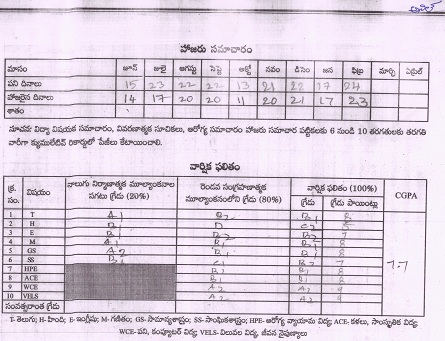 హాజరు సమాచారం
మాసం జూన్ జులై ఆగస్టు సెప్టె అక్టో నవం డిసెం జన ఫిబ్ర మార్చి ఏప్రిల్
పని దినాలు 15 23 22 22 13 21 22 17 24
హాజరైన దినాలు 14 17 20 20 11 20 21 17 23
శాతం
సూచన: విద్యా విషయక సమాచారం, వివరణాత్మక సూచికలు, ఆరోగ్య సమాచారం హాజరు సమాచార పట్టికలకు 6 నుండి 10 తరగతులకు తరగతి
వారీగా క్యుములేటివ్ రికార్డులో పేజీలు కేటాయించాలి.
వార్షిక ఫలితం
క్ర. సం. విషయం నాలుగు నిర్మాణాత్మక మూల్యాంకనాల సగటు గ్రేడు (20%) రెండవ సంగ్రహణాత్మక మూల్యాంకనంలోని గ్రేడు (80%) వార్షిక ఫలితం (100%) గ్రేడు గ్రేడు పాయింట్లు CGPA
1 T A1 B2 B1 8
2 H
3 E B2 7
4 M A1 B1 8
5 GS A2 B1 8
6 SS 7
7 HPE B1 B1 8
8 ACE B1 B1 8
9 WCE A2 A2 9
10 VELS A2 A2 9
7.7
సంవత్సరాంత గ్రేడు
T- తెలుగు; H-హింది; E- ఇంగ్లీషు; M-గణితం; GS- సామాన్యశాస్త్రం; SS-సాంఘికశాస్త్రం; HPE- ఆరోగ్య వ్యాయామ విద్య ACE- కళలు, సాంస్కృతిక విద్య
WCE-పని, కంప్యూటర్ విద్య VELS-విలువల విద్య, జీవన నైపుణ్యాలు